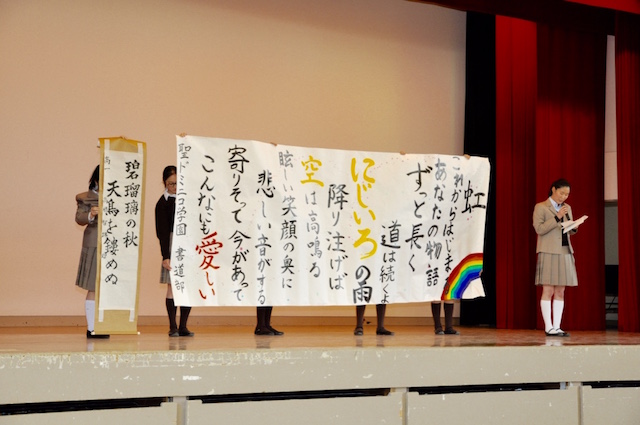 虹
これからはじまる
あなたの物語
ずっと長く
道は続くよ
にじいろの雨
降り注げは
空は高鳴る
眩しい笑顔の奥に
悲しい音がする
寄りそって今があって
こんなにも愛しい
聖ドミニコ学園 書道部
碧瑠璃の秋
天鳰を鏤めぬ
高一